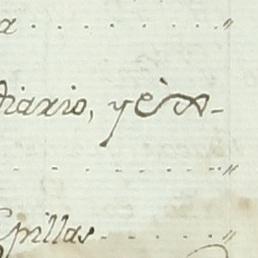 a . . . . . . . . "
diario, y èx-
. . . . . . . . . "
Epillas . . . . . "